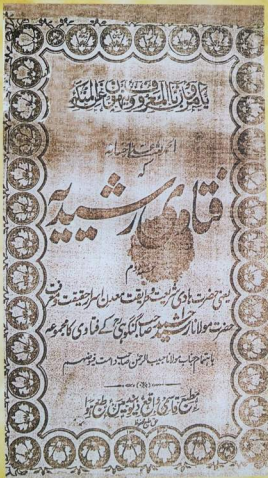 يأمرون بالمعروف وينهون عن المنكر
الحمد لله
کہ
فتاوی رشیدیہ
حصہ دوم
یعنی حضرت ہادی شریعت و طریقت معدن اسرار حقیقت و معرفت
حضرت مولانا رشید احمد صاحب گنگوہی کے فتاوی کا مجموعہ
باہتمام جناب مولانا حبیب الرحمن صاحب دامت فیوضہم
مطبع قاسمی واقع دیوبند میں طبع ہوا